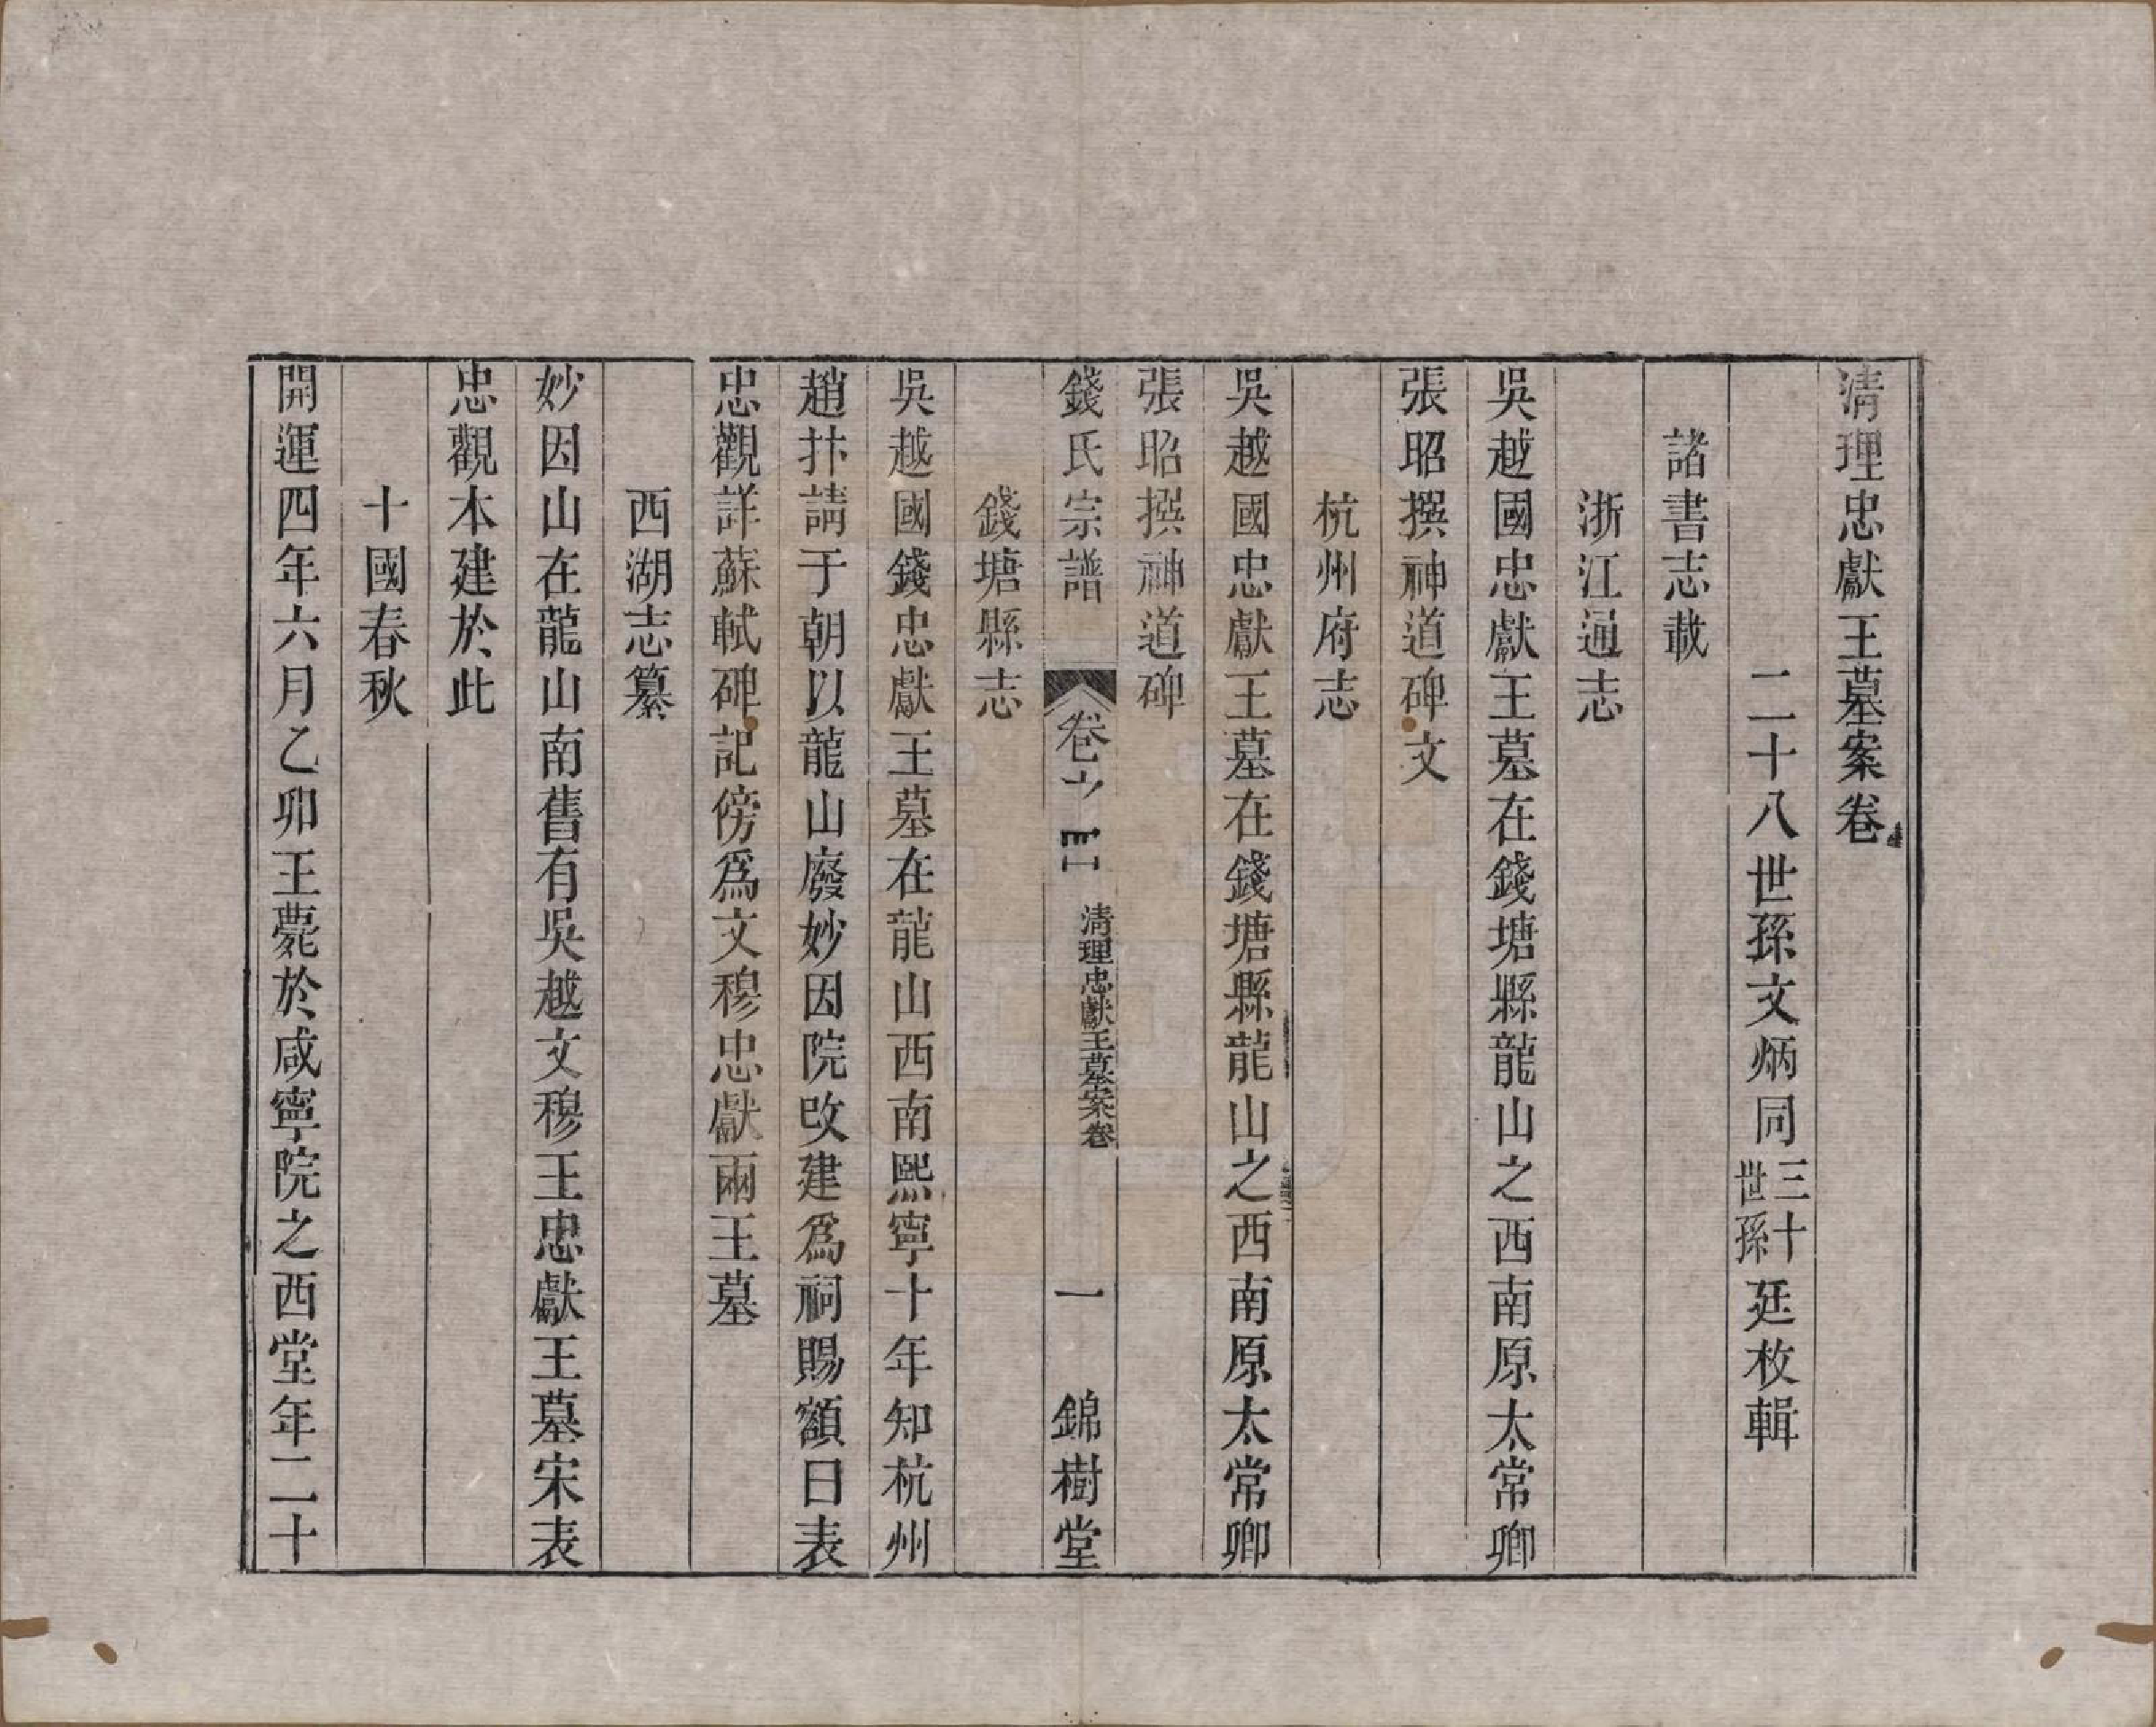 清理忠獻王墓案卷
二十八世孫文炳同三十世孫廷枚輯
諸書志載
浙江通志
吳越國忠獻王墓在錢塘縣龍山之西南原太常卿
張昭撰神道碑文
杭州府志
吳越國忠獻王墓在錢塘縣龍山之西南原太常卿
張昭撰神道碑
錢氏宗譜 卷 清理忠獻王墓案卷 一 錦樹堂
錢塘縣志
吳越國錢忠獻王墓在龍山西南熙寧十年知杭州
趙抃請于朝以龍山廢妙因院改建爲祠賜額曰表
忠觀詳蘇軾碑記傍爲文穆忠獻兩王墓
西湖志纂
妙因山在龍山南舊有吳越文穆王忠獻王墓宋表
忠觀本建於此
十國春秋
開運四年六月乙卯王薨於咸寧院之西堂年二十